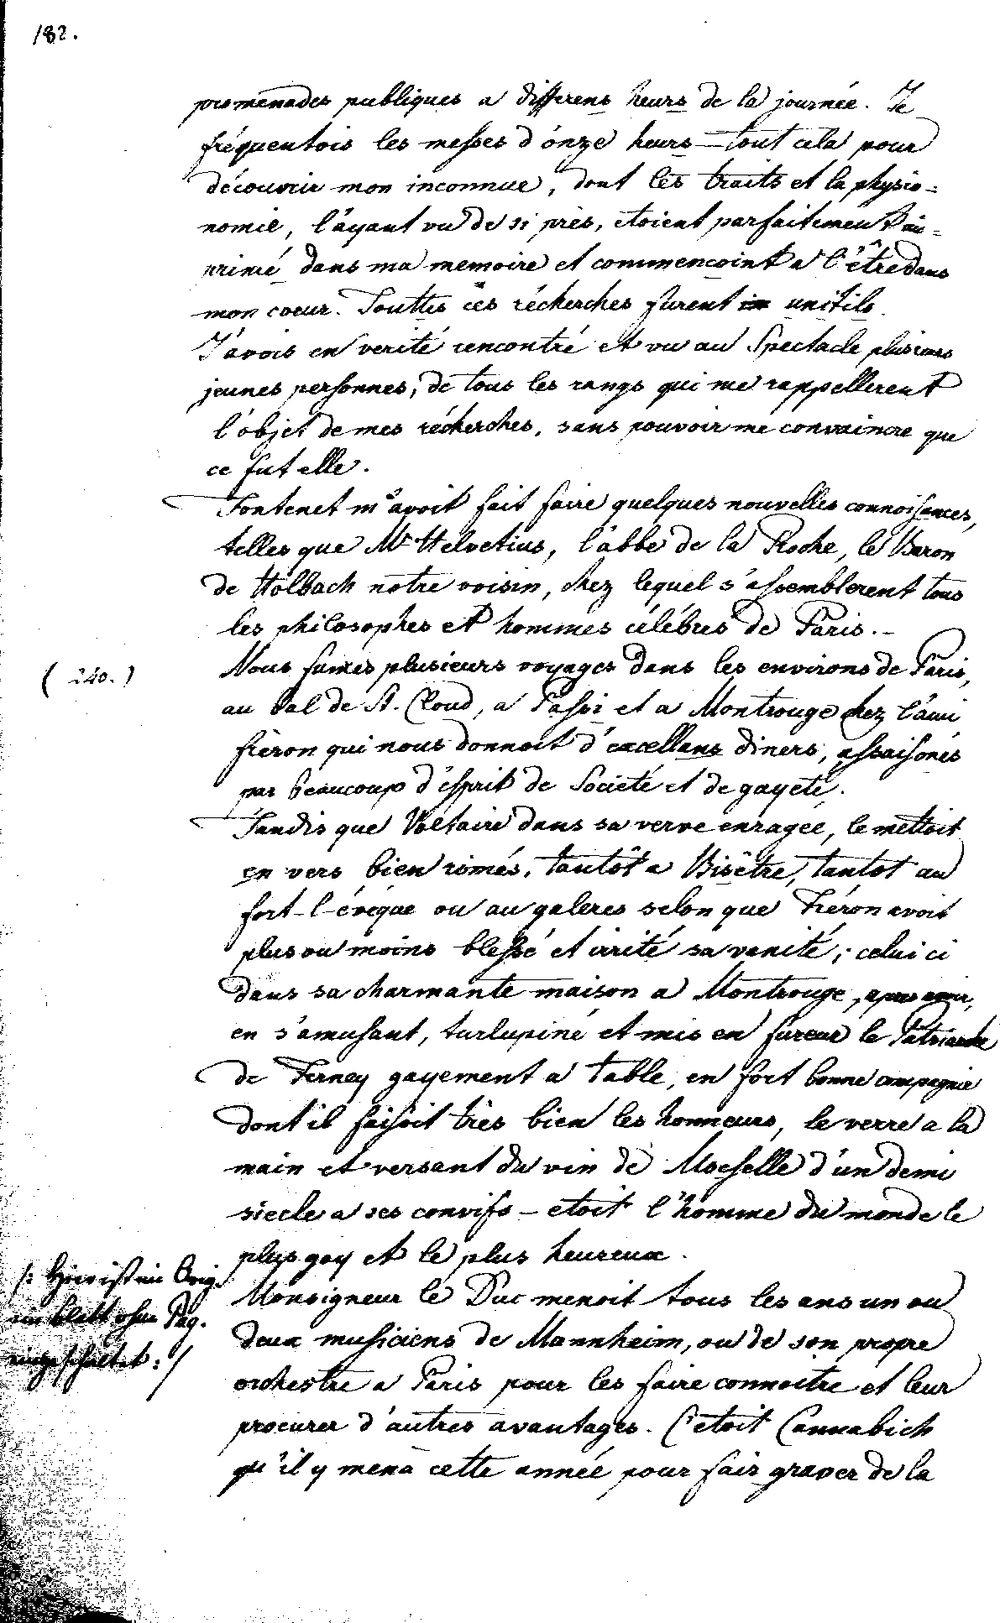 182.
promenades publiques a differens heurs de la journée. Je
fréquentois les messes d'ónze heurs – tout cela pour
découvrir mon inconnue, dont les traits et la physio=
nomie, l'áyant vu de si près, etoient parfaitement im=
primé dans ma memoire et commencoint a l'être dans
mon coeur. Touttes ces récherches furent unitils.
J'avois en verité rencontré et vu au Spectacle plusieurs
jeunes personnes, de tous les rangs qui me rappellerent
l'objet de mes récherches, sans pouvoir me convaincre que
ce fut elle.
Fontenet m'avoit fait faire quelques nouvelles connoisances,
telles que Mr Helvetius, l'abbé de la Roche, le Baron
de Holbach notre voisin, chez lequel s'assemblerent tous
les philosophes et hommes célébres de Paris. –
Nous faimes plusieurs voyages dans les environs de Paris,
( 240. )
au bal de St. Cloud, a Passi et a Montrouge chez l'ami
frèron qui nous donnoit d'excellans diners, assaisonés
par beaucoup d'ésprit de Societé et de gayeté.
Tandis que Voltaire dans sa verve enragée, le mettoit
en vers bien rimés, tautôt a Bisêtre, tantot au
fort-l-évéque ou au galeres selon que Fréron avoit
plus ou moins blessé et irité sa vanité; celui ci
dans sa charmante maison a Montrouge, apres avoir,
en s'amusant, turlupiné et mis en fureur le Patriarche
de Ferney gayement a table, en fort bonne compagnie
dont il faisoit très bien les honneurs, le verre a la
main et versant du vin de Moselle d'un demi
siecle a ses convifs – etoit l'homme du monde le
plus gay et le plus heureux.
/: Hier ist im Orig.
ein Blatt ohne Pag.
eingeschaltet :/
Monsigneur le Duc menoit tous les ans un ou
deux musiciens de Mannheim, ou de son propre
orchestre a Paris pour les faire connoitre et leur
procurer d'autres avantages. C'etoit Cannabich
qu'il y mena cette année pour fair graver de la